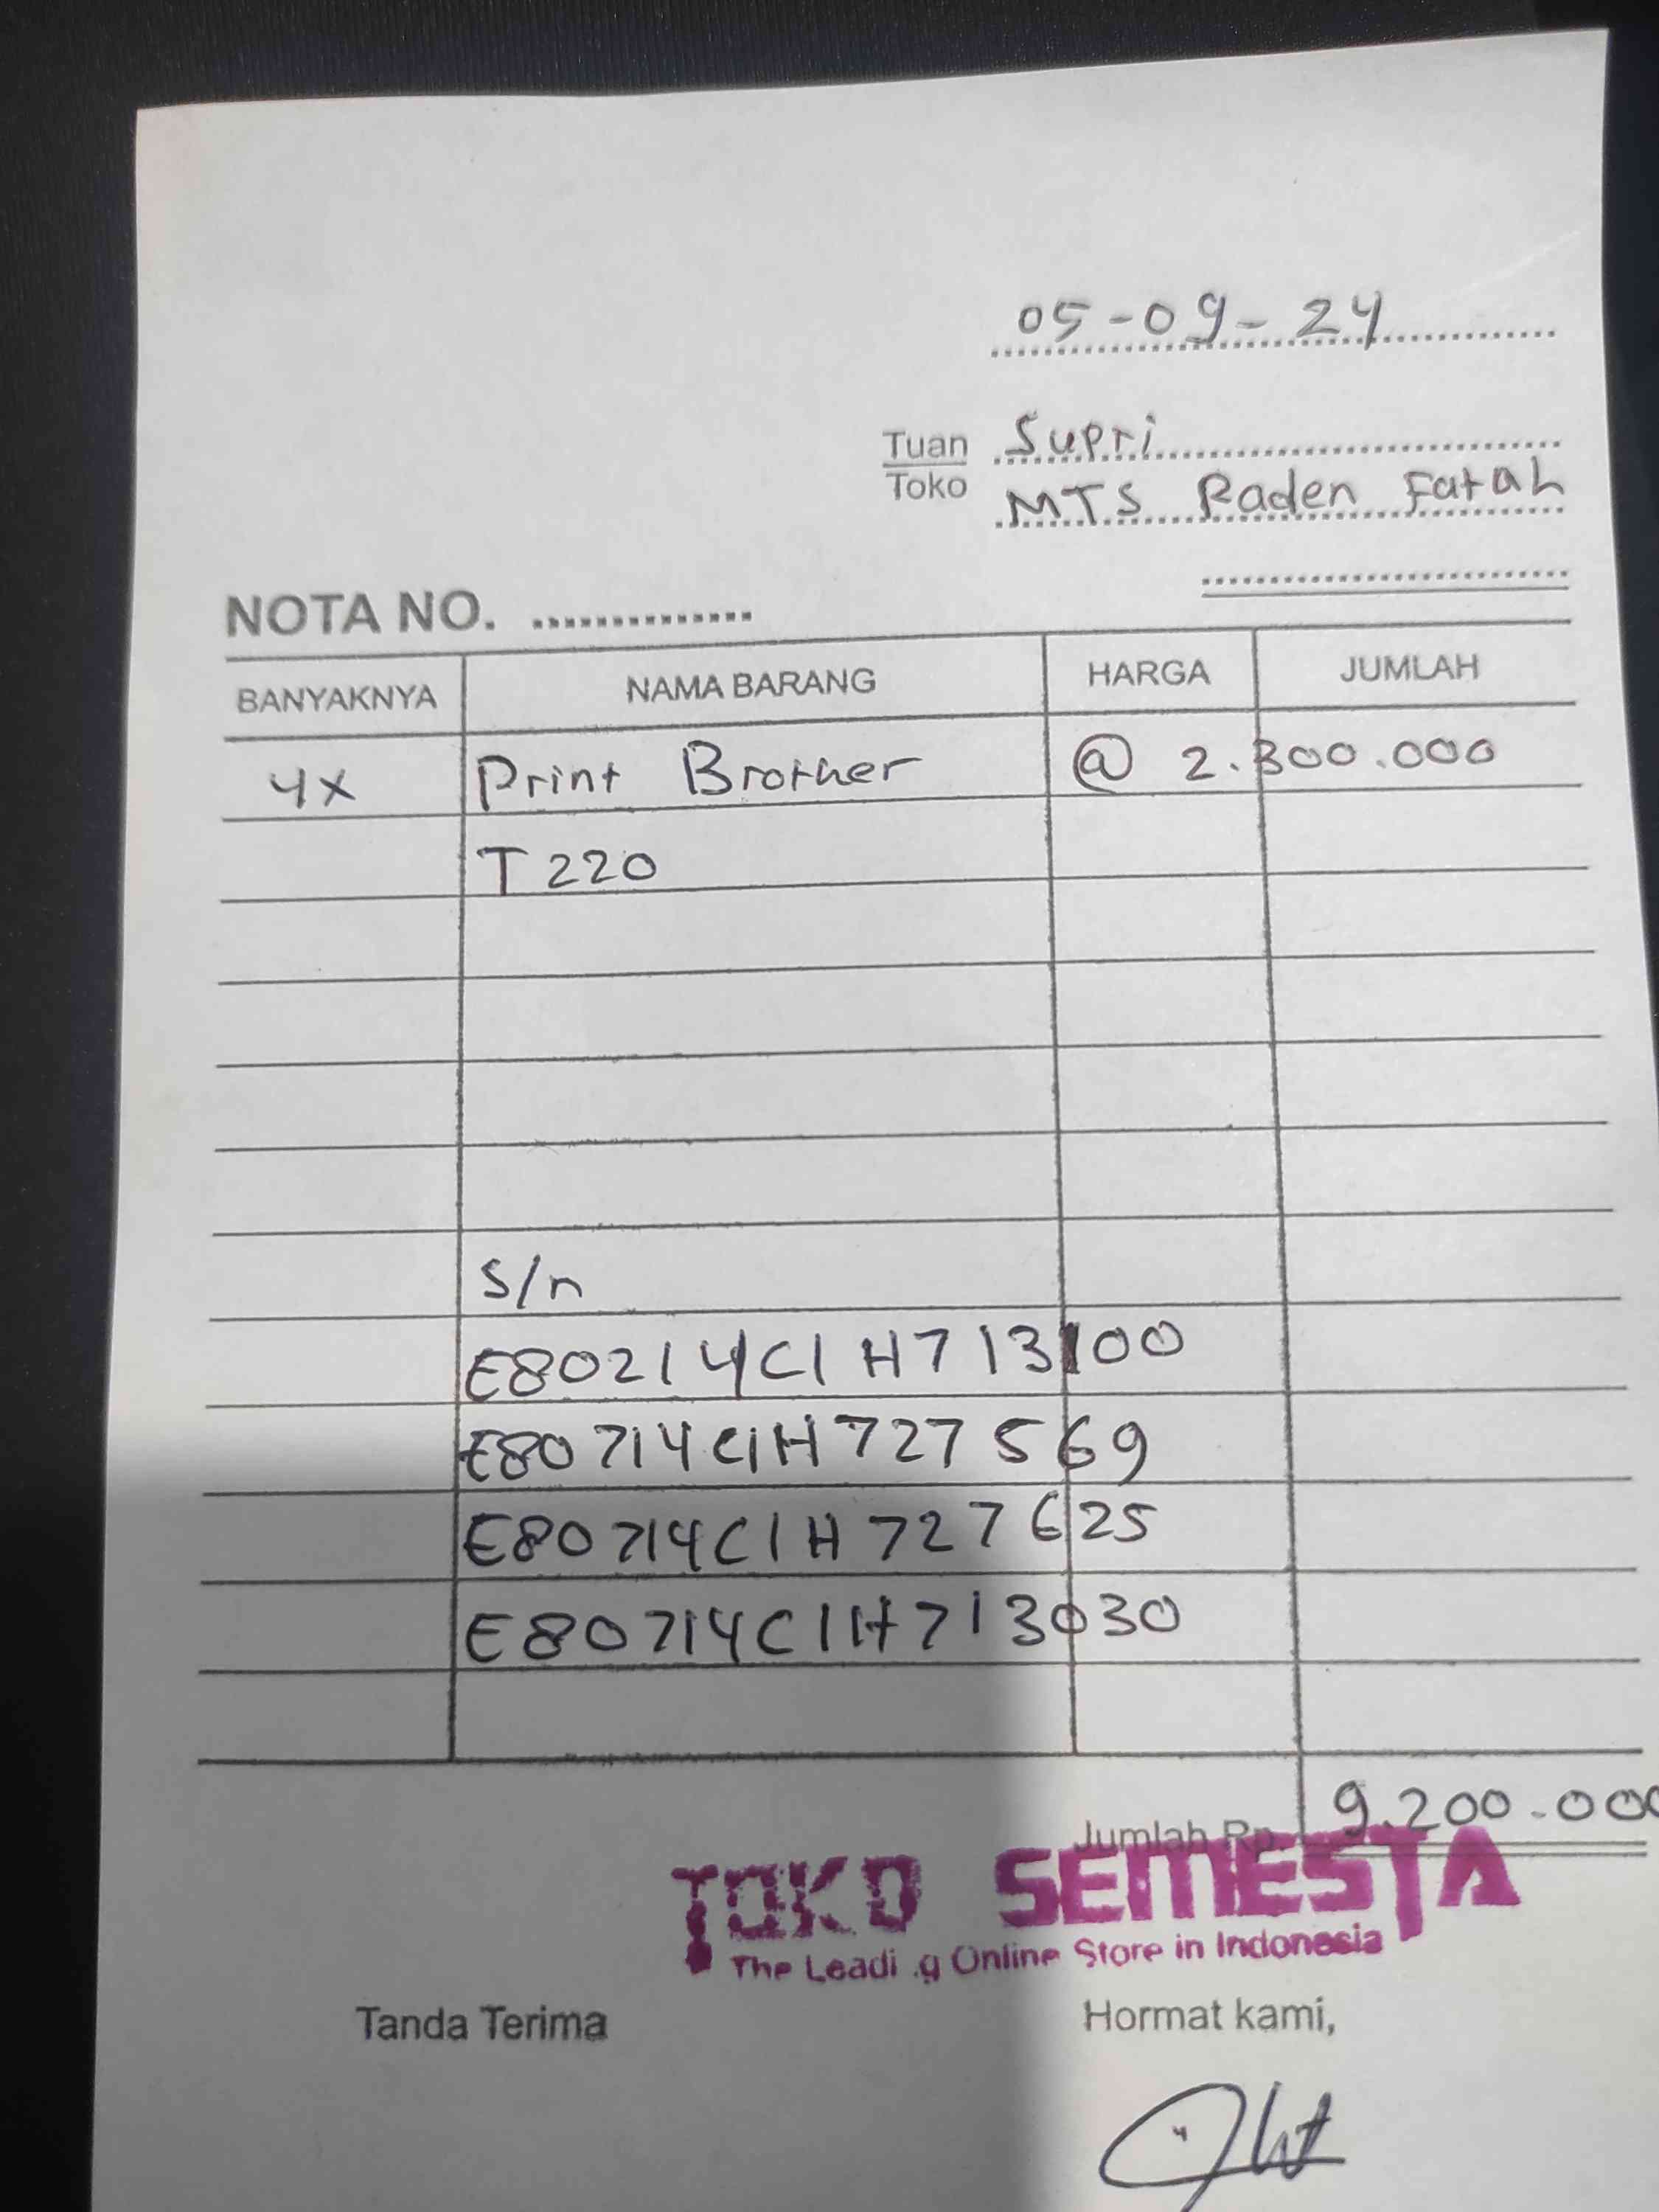 05-09-24
Tuan Supri
Toko MTS Raden Fatah
NOTA NO. ..............
BANYAKNYA NAMA BARANG HARGA JUMLAH
4x Print Brother @ 2.300.000
T220
S/n
E80214C1H713100
E80714C1H727569
E80714C1H727625
E80714C1H713030
Jumlah Rp. 9.200.000
TOKO SEMESTA
The Leadi g Online Store in Indonesia
Tanda Terima Hormat kami,